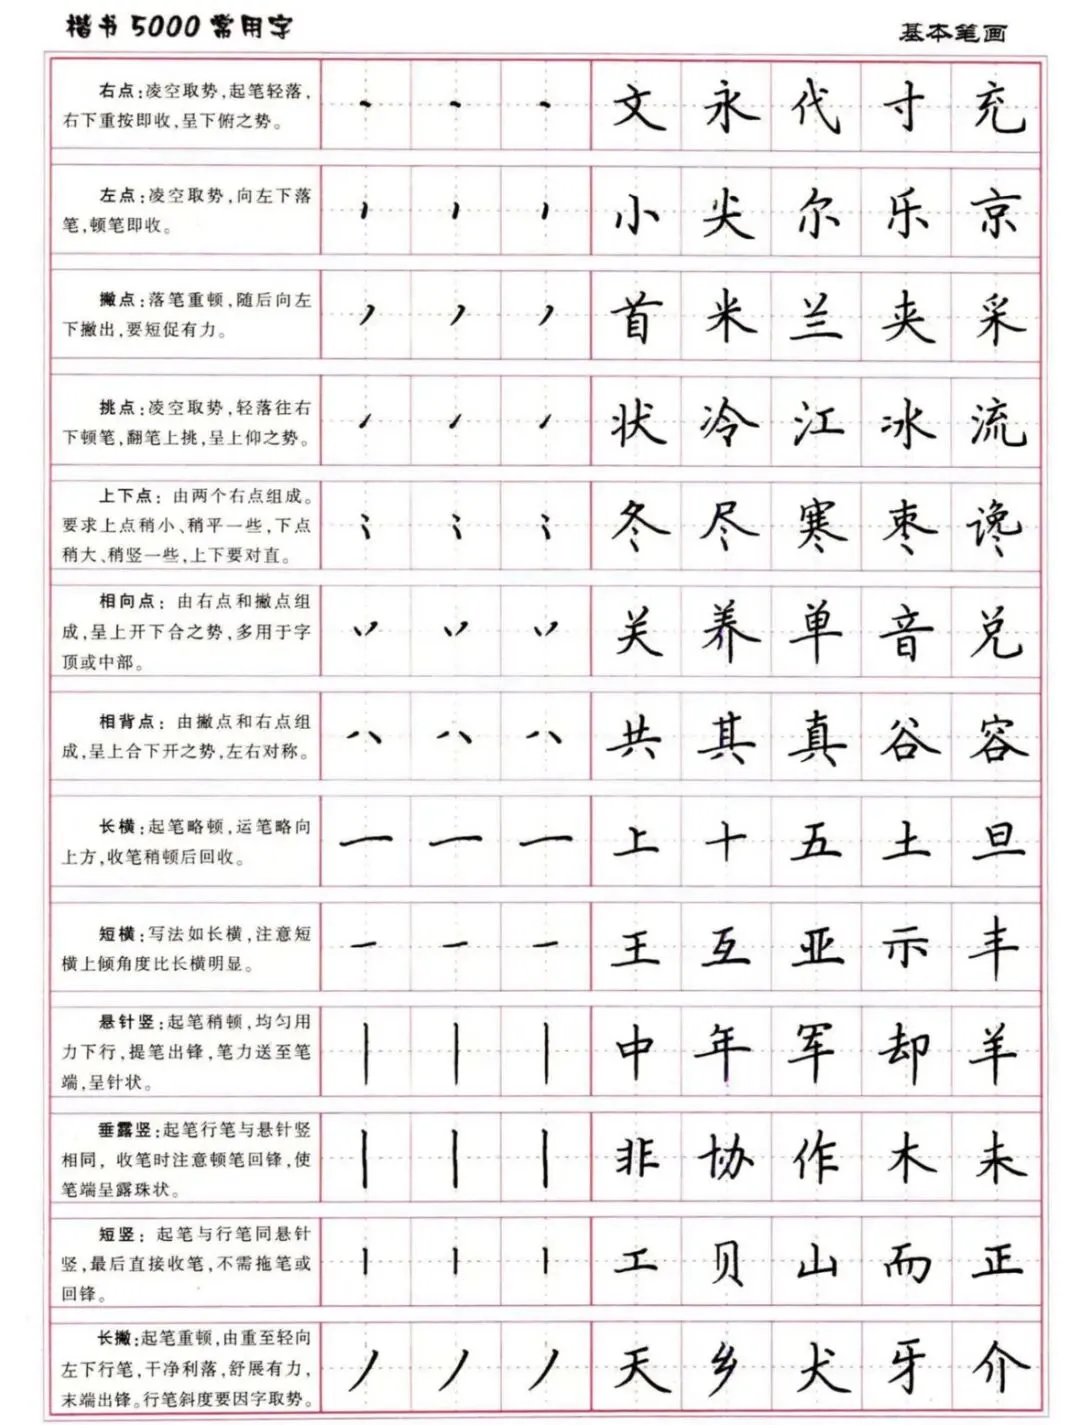 楷书5000常用字
基本笔画
右点:凌空取势,起笔轻落,
右下重按即收,呈下俯之势。
文 永 代 寸 充
左点:凌空取势,向左下落
笔,顿笔即收。
小 尖 尔 乐 京
撇点:落笔重顿,随后向左
下撇出,要短促有力。
首 米 兰 夹 采
挑点:凌空取势,轻落往右
下顿笔,翻笔上挑,呈上仰之势。
状 冷 江 冰 流
上下点:由两个右点组成。
要求上点稍小、稍平一些,下点
稍大、稍竖一些,上下要对直。
冬 尽 寒 枣 谗
相向点:由右点和撇点组
成,呈上开下合之势,多用于字
顶或中部。
关 养 单 音 兑
相背点:由撇点和右点组
成,呈上合下开之势,左右对称。
共 其 真 谷 容
长横:起笔略顿,运笔略向
上方,收笔稍顿后回收。
上 十 五 土 旦
短横:写法如长横,注意短
横上倾角度比长横明显。
王 互 亚 示 丰
悬针竖:起笔稍顿,均匀用
力下行,提笔出锋,笔力送至笔
端,呈针状。
中 年 军 却 羊
垂露竖:起笔行笔与悬针竖
相同,收笔时注意顿笔回锋,使
笔端呈露珠状。
非 协 作 木 未
短竖:起笔与行笔同悬针
竖,最后直接收笔,不需拖笔或
回锋。
工 贝 山 而 正
长撇:起笔重顿,由重至轻向
左下行笔,干净利落,舒展有力,
末端出锋。行笔斜度要因字取势。
天 乡 犬 牙 介